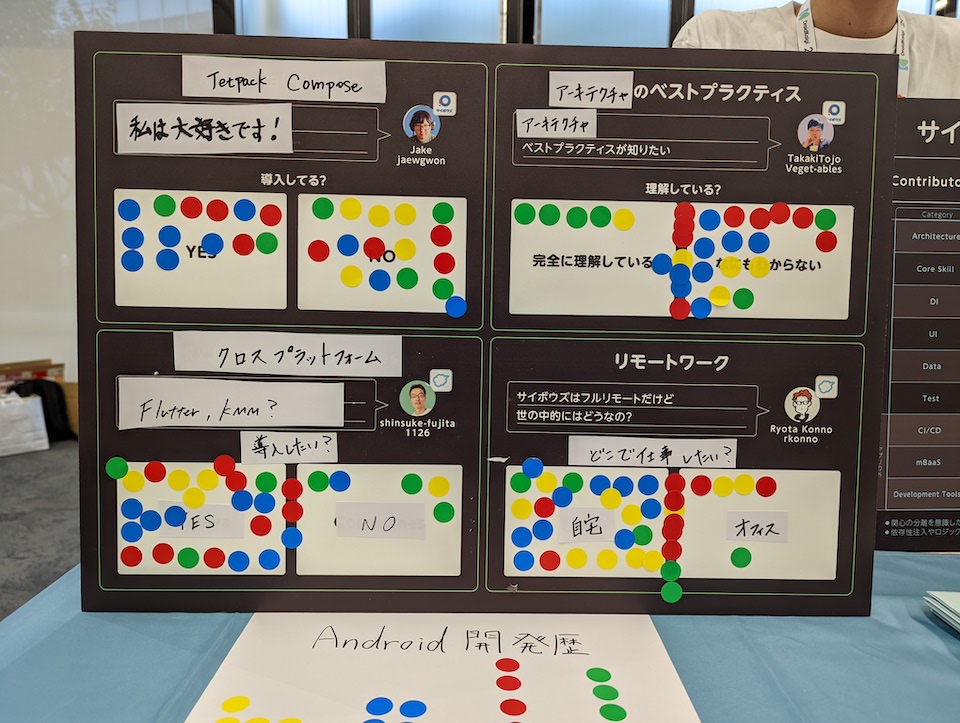 Jetpack Compose
私は大好きです!
サイボウズ
Jake
jaewgwon
導入してる?
YES
NO
アーキテクチャのベストプラクティス
アーキテクチャ
ベストプラクティスが知りたい
サイボウズ
TakakiTojo
Veget-ables
理解している?
完全に理解している
なにもわからない
クロスプラットフォーム
Flutter, KMM?
shinsuke-fujita
1126
導入したい?
YES
NO
リモートワーク
サイボウズはフルリモートだけど
世の中的にはどうなの?
Ryota Konno
rkonno
どこで仕事したい?
自宅
オフィス
Android 開発歴
サイ
Contributo
Category
Architecture
Core Skill
DI
UI
Data
Test
CI/CD
mBaaS
Development Tools
● 関心の分離を意識した
● 依存性注入やロジック